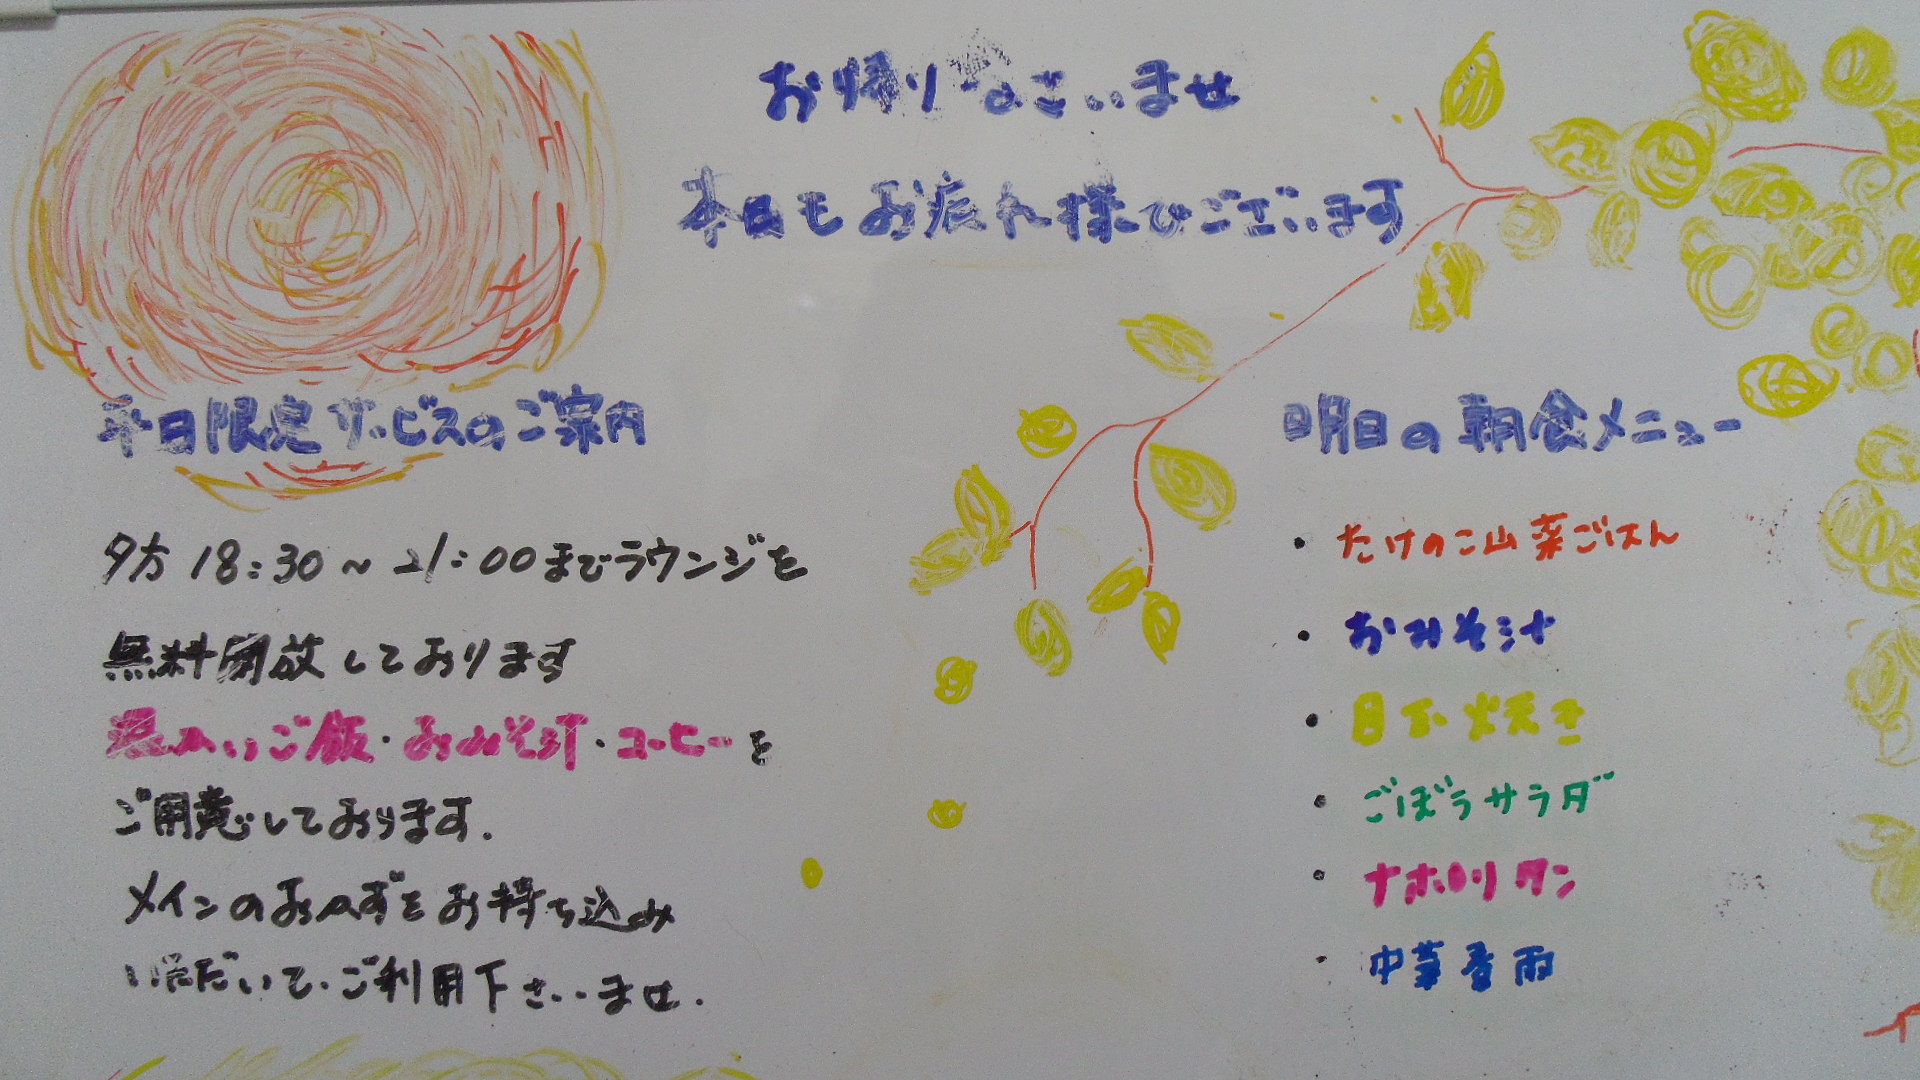 お帰りなさいませ
本日もお疲れ様でございます
平日限定サービスのご案内
夕方 18:30～21:00までラウンジを
無料開放しております
温かいご飯・お味そ汁・コーヒーを
ご用意しております.
メインのおかずをお持ち込み
いただいて、ご利用下さいませ.
明日の朝食メニュー
・たけのこ山菜ごはん
・おみそ汁
・目玉焼き
・ごぼうサラダ
・ナポリタン
・中華春雨